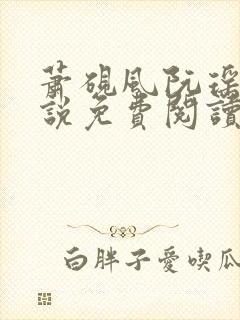 蕭硯風阮瑶
說免費閱讀
白胖子愛喫瓜